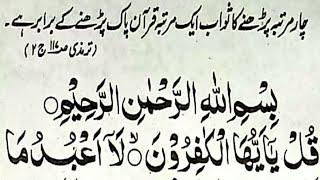 چار مرتبہ پڑھنے کا ثواب ایک مرتبہ قرآن پاک پڑھنے کے برابر ہے۔
(ترمذی صـ ۱۱۷ ج ۲)
بِسْمِ اللهِ الرَّحْمٰنِ الرَّحِيْمِ
قُلْ يٰٓاَيُّهَا الْكٰفِرُوْنَ ۙ لَآ اَعْبُدُ مَا